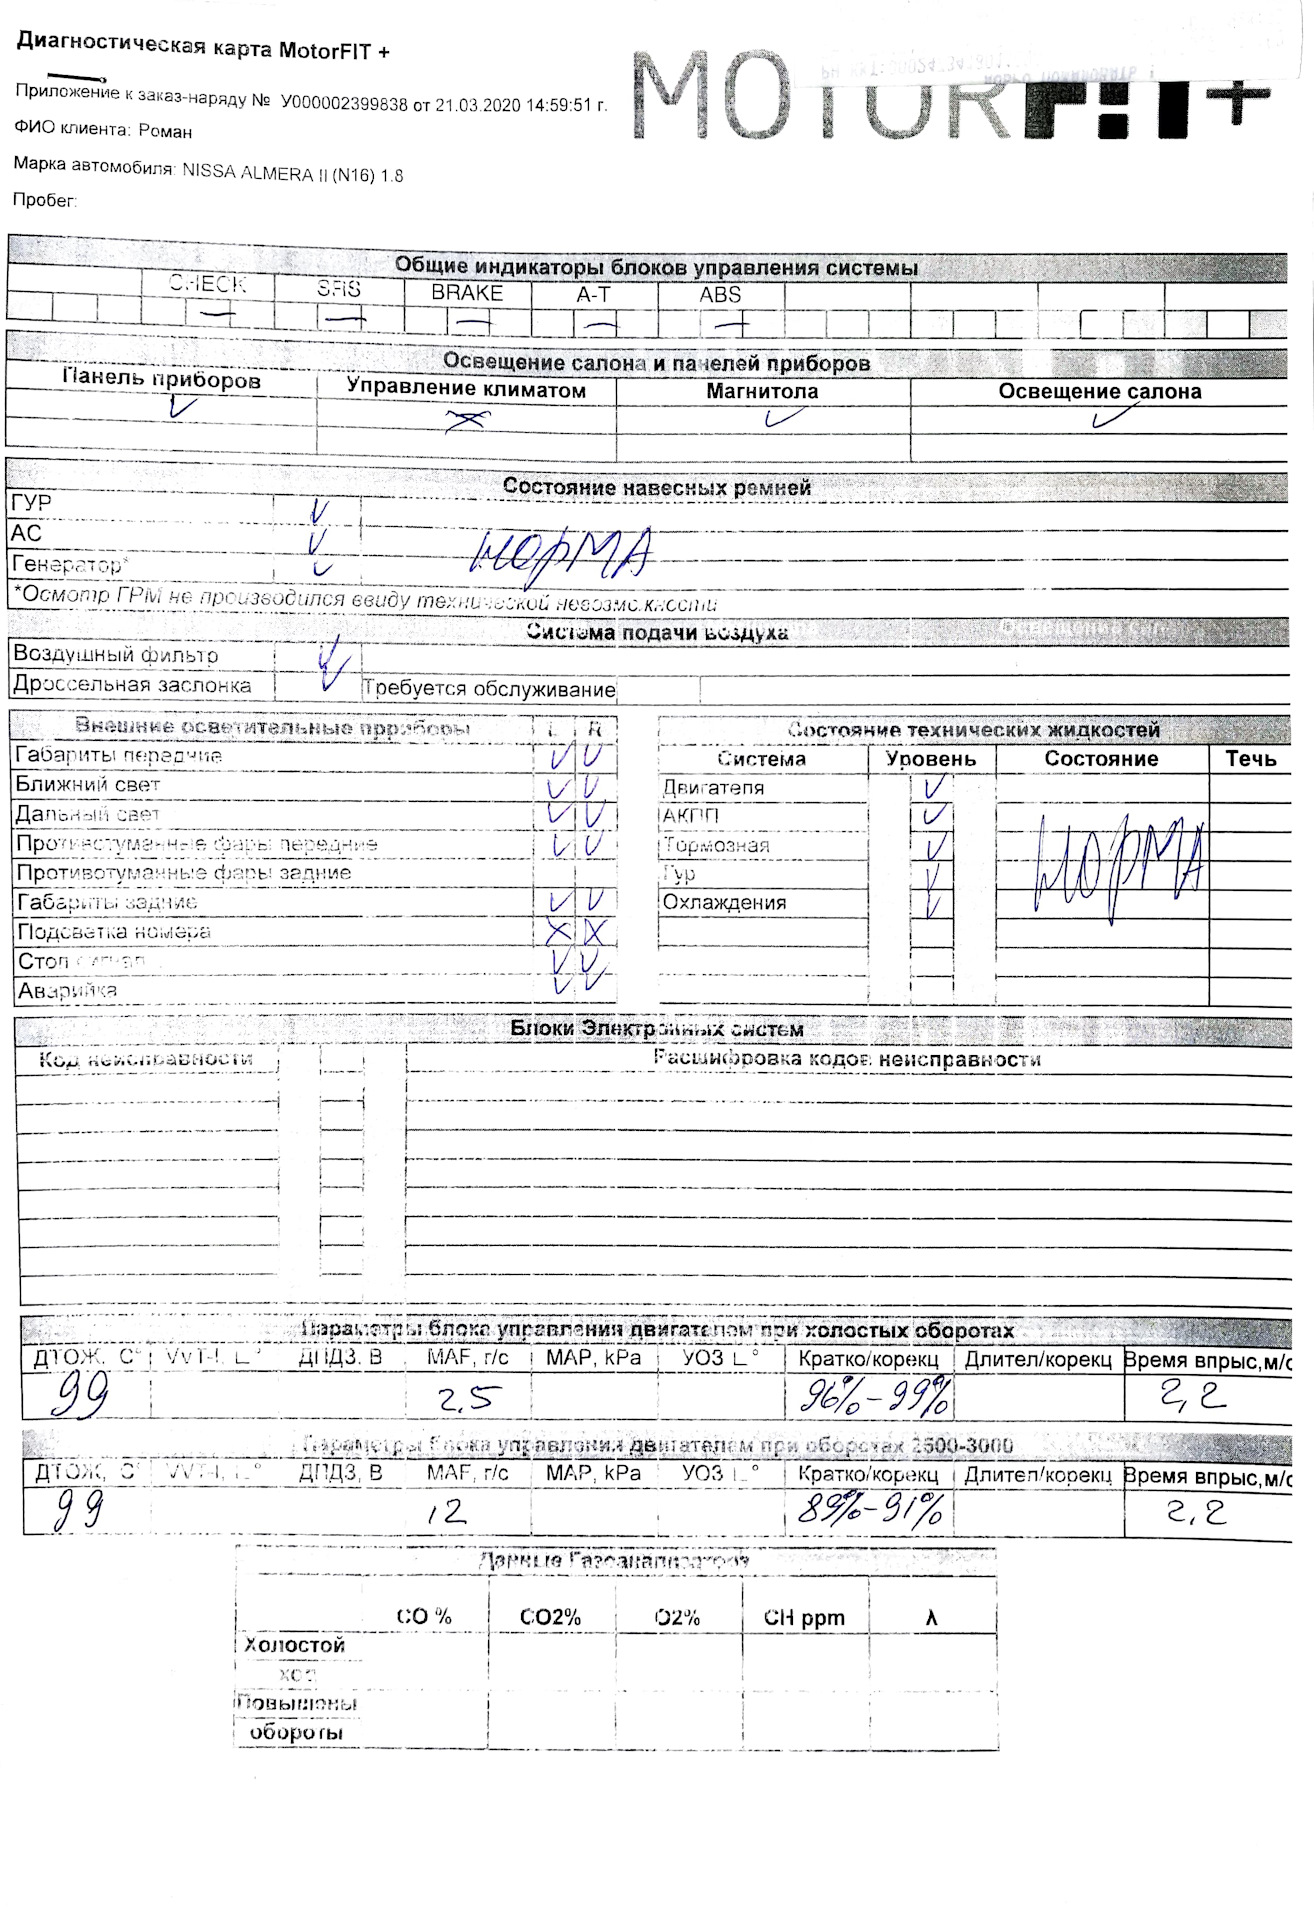 Диагностическая карта MotorFIT +
MOTORFIT+
Приложение к заказ-наряду № У000002399838 от 21.03.2020 14:59:51 г.
ФИО клиента: Роман
Марка автомобиля: NISSA ALMERA II (N16) 1.8
Пробег:
Общие индикаторы блоков управления системы
CHECK SRS BRAKE A-T ABS
Освещение салона и панелей приборов
Панель приборов Управление климатом Магнитола Освещение салона
Состояние навесных ремней
ГУР
АС
Генератор* НОРМА
*Осмотр ГРМ не производился ввиду технической невозможности
Система подачи воздуха
Воздушный фильтр
Дроссельная заслонка Требуется обслуживание
Внешние осветительные прриборы L R
Габариты передние
Ближний свет
Дальный свет
Противотуманные фары передние
Противотуманные фары задние
Габариты задние
Подсветка номера
Стоп сигнал
Аварийка
Состояние технических жидкостей
Система Уровень Состояние Течь
Двигателя
АКПП
Тормозная НОРМА
Гур
Охлаждения
Блоки Электронных систем
Код неисправности Расшифровка кодов неисправности
Параметры блока управления двигателем при холостых оборотах
ДТОЖ, C° VVT-I, L° ДПДЗ, В MAF, г/с MAP, kPa УОЗ L° Кратко/корекц Длител/корекц Время впрыс,м/с
99 2,5 96%-99% 2,2
Параметры блока управления двигателем при оборотах 2500-3000
ДТОЖ, C° VVT-I, L° ДПДЗ, В MAF, г/с MAP, kPa УОЗ L° Кратко/корекц Длител/корекц Время впрыс,м/с
99 12 89%-91% 2,2
Данные Газоанализатора
CO % CO2% O2% CH ppm λ
Холостой
ход
Повышоны
обороты